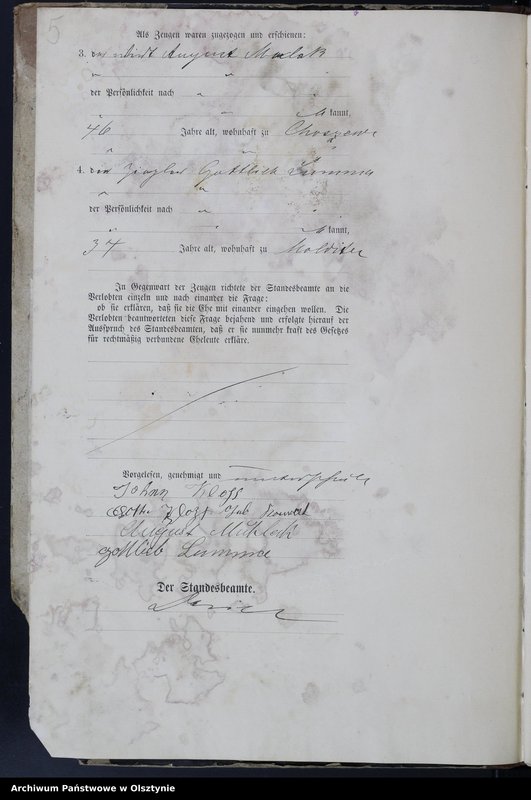 5
Als Zeugen waren zugezogen und erschienen:
3. der August
der Persönlichkeit nach
kannt,
46 Jahre alt, wohnhaft zu
4. der Ziegler Gottlieb Lumma
der Persönlichkeit nach
kannt,
34 Jahre alt, wohnhaft zu
In Gegenwart der Zeugen richtete der Standesbeamte an die
Verlobten einzeln und nach einander die Frage:
ob sie erklären, daß sie die Ehe mit einander eingehen wollen. Die
Verlobten beantworteten diese Frage bejahend und erfolgte hierauf der
Ausspruch des Standesbeamten, daß er sie nunmehr kraft des Gesetzes
für rechtmäßig verbundene Eheleute erkläre.
Vorgelesen, genehmigt und unterschrieben
Johan Kloss
August
Gottlieb Lumma
Der Standesbeamte.
Archiwum Państwowe w Olsztynie